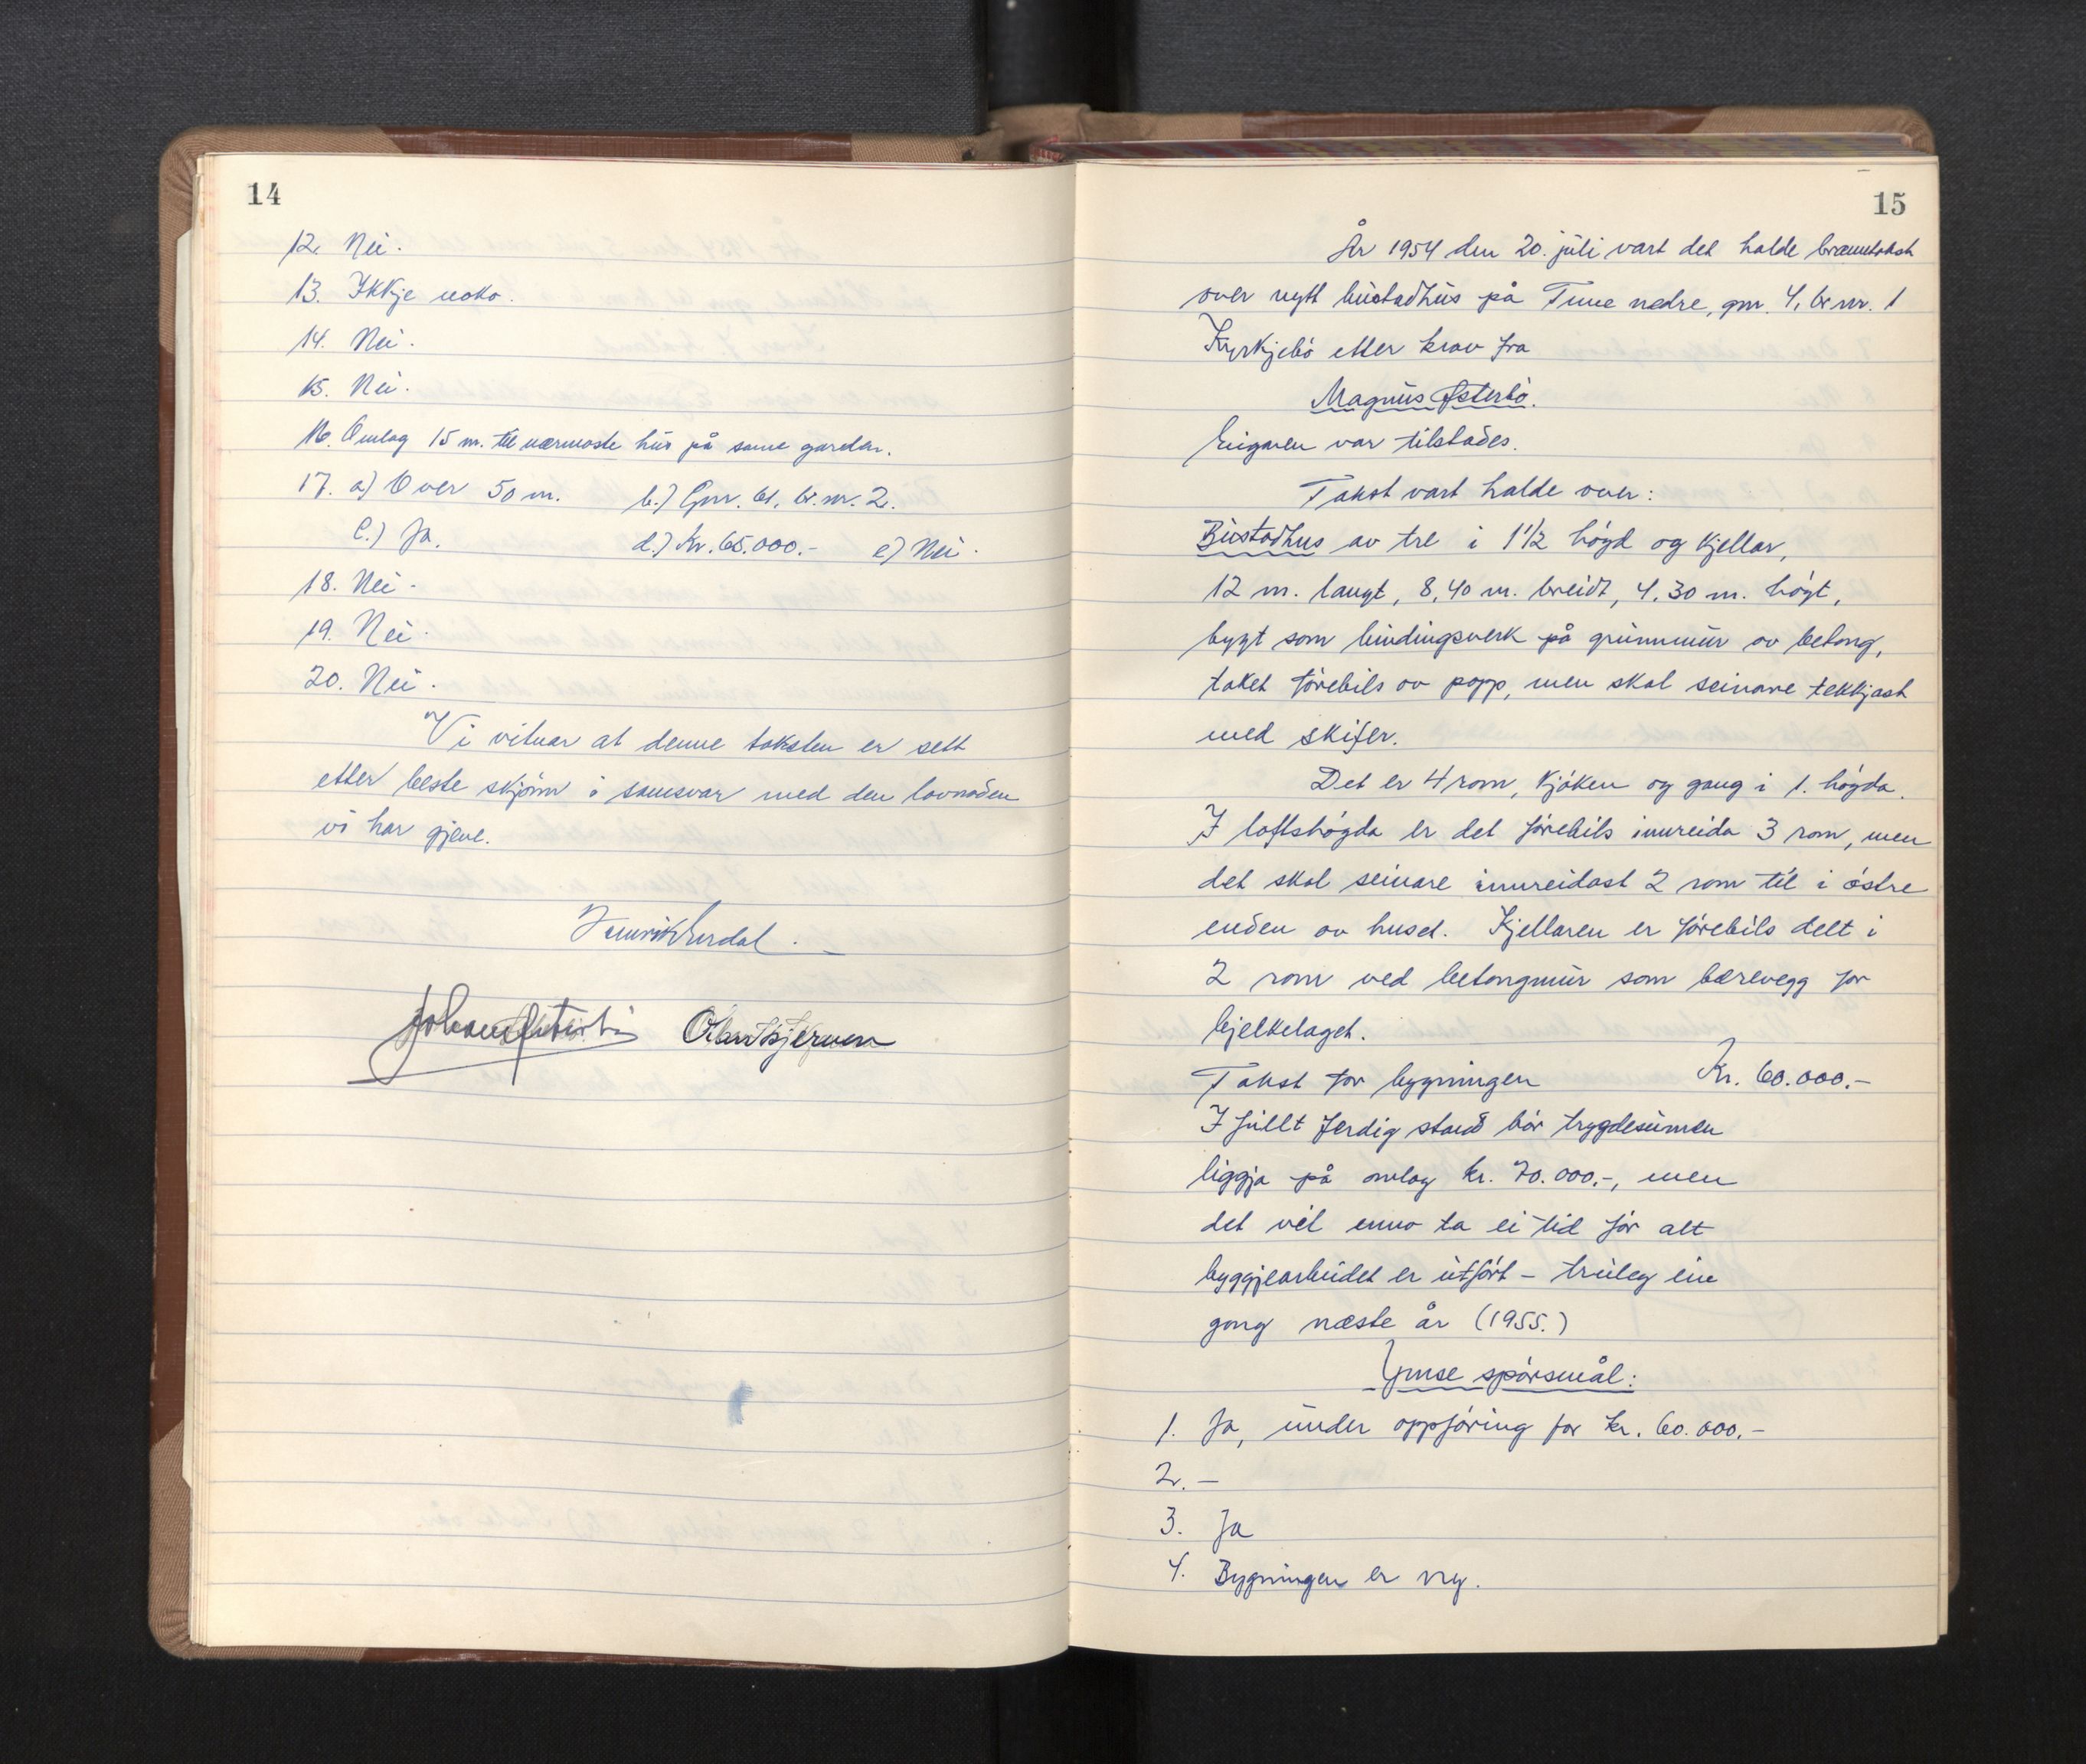 14
12. Nei.
13. Ikkje noko.
14. Nei.
15. Nei.
16. Omlag 15 m. til nærmaste hus på same garden.
17. a) Over 50 m. b.) Gnr. 61, br. nr. 2.
c.) Ja. d.) Kr. 65.000.- e) Nei.
18. Nei.
19. Nei.
20. Nei.
Vi vitnar at denne taksten er sett
etter beste skjönn i samsvar med den lovnaden
vi har gjeve.
15
År 1954 den 20. juli vart det halde branntakst
over nytt bustadhus på Tune nedre, gnr. 4, br nr. 1
Kyrkjebö etter krav fra
Magnus Østerbö.
Eigaren var tilstades.
Takst vart halde over:
Bustadhus av tre i 1 1/2 högd og kjellar,
12 m. langt, 8,40 m. breidt, 4.30 m. högt,
bygt som bindingsverk på grunnmur av betong,
taket förebils av papp, men skal seinare tekkjast
med skifer.
Det er 4 rom, kjöken og gang i 1. högda.
I loftshögda er det förebils innreida 3 rom, men
det skal seinare innreidast 2 rom til i östre
enden av huset. Kjellaren er förebils delt i
2 rom ved betongmur som bærevegg for
bjelkelaget.
Takst for bygningen Kr. 60.000.-
I fullt ferdig stand bör trygdesumen
liggja på omlag kr. 70.000.-, men
det vil enno ta ei tid för alt
byggjearbeidet er utfört - truleg ein
gong næste år (1955.)
Ymse spörsmål:
1. Ja, under oppföring for kr. 60.000.-
2. -
3. Ja
4. Bygningen er ny.